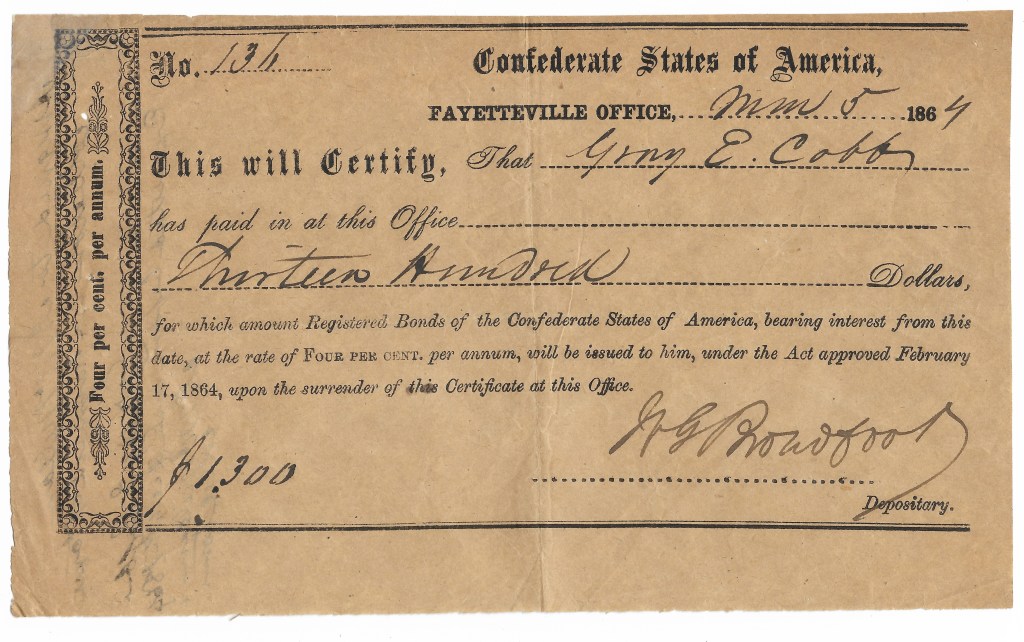 No. 136
Confederate States of America,
FAYETTEVILLE OFFICE, 5 1864
This will Certify, That Gray E. Cobb
has paid in at this Office
Thirteen Hundred Dollars,
for which amount Registered Bonds of the Confederate States of America, bearing interest from this
date, at the rate of FOUR PER CENT. per annum, will be issued to him, under the Act approved February
17, 1864, upon the surrender of this Certificate at this Office.
W G Broadfoot
$1.300
Depositary.
Four per cent. per annum.